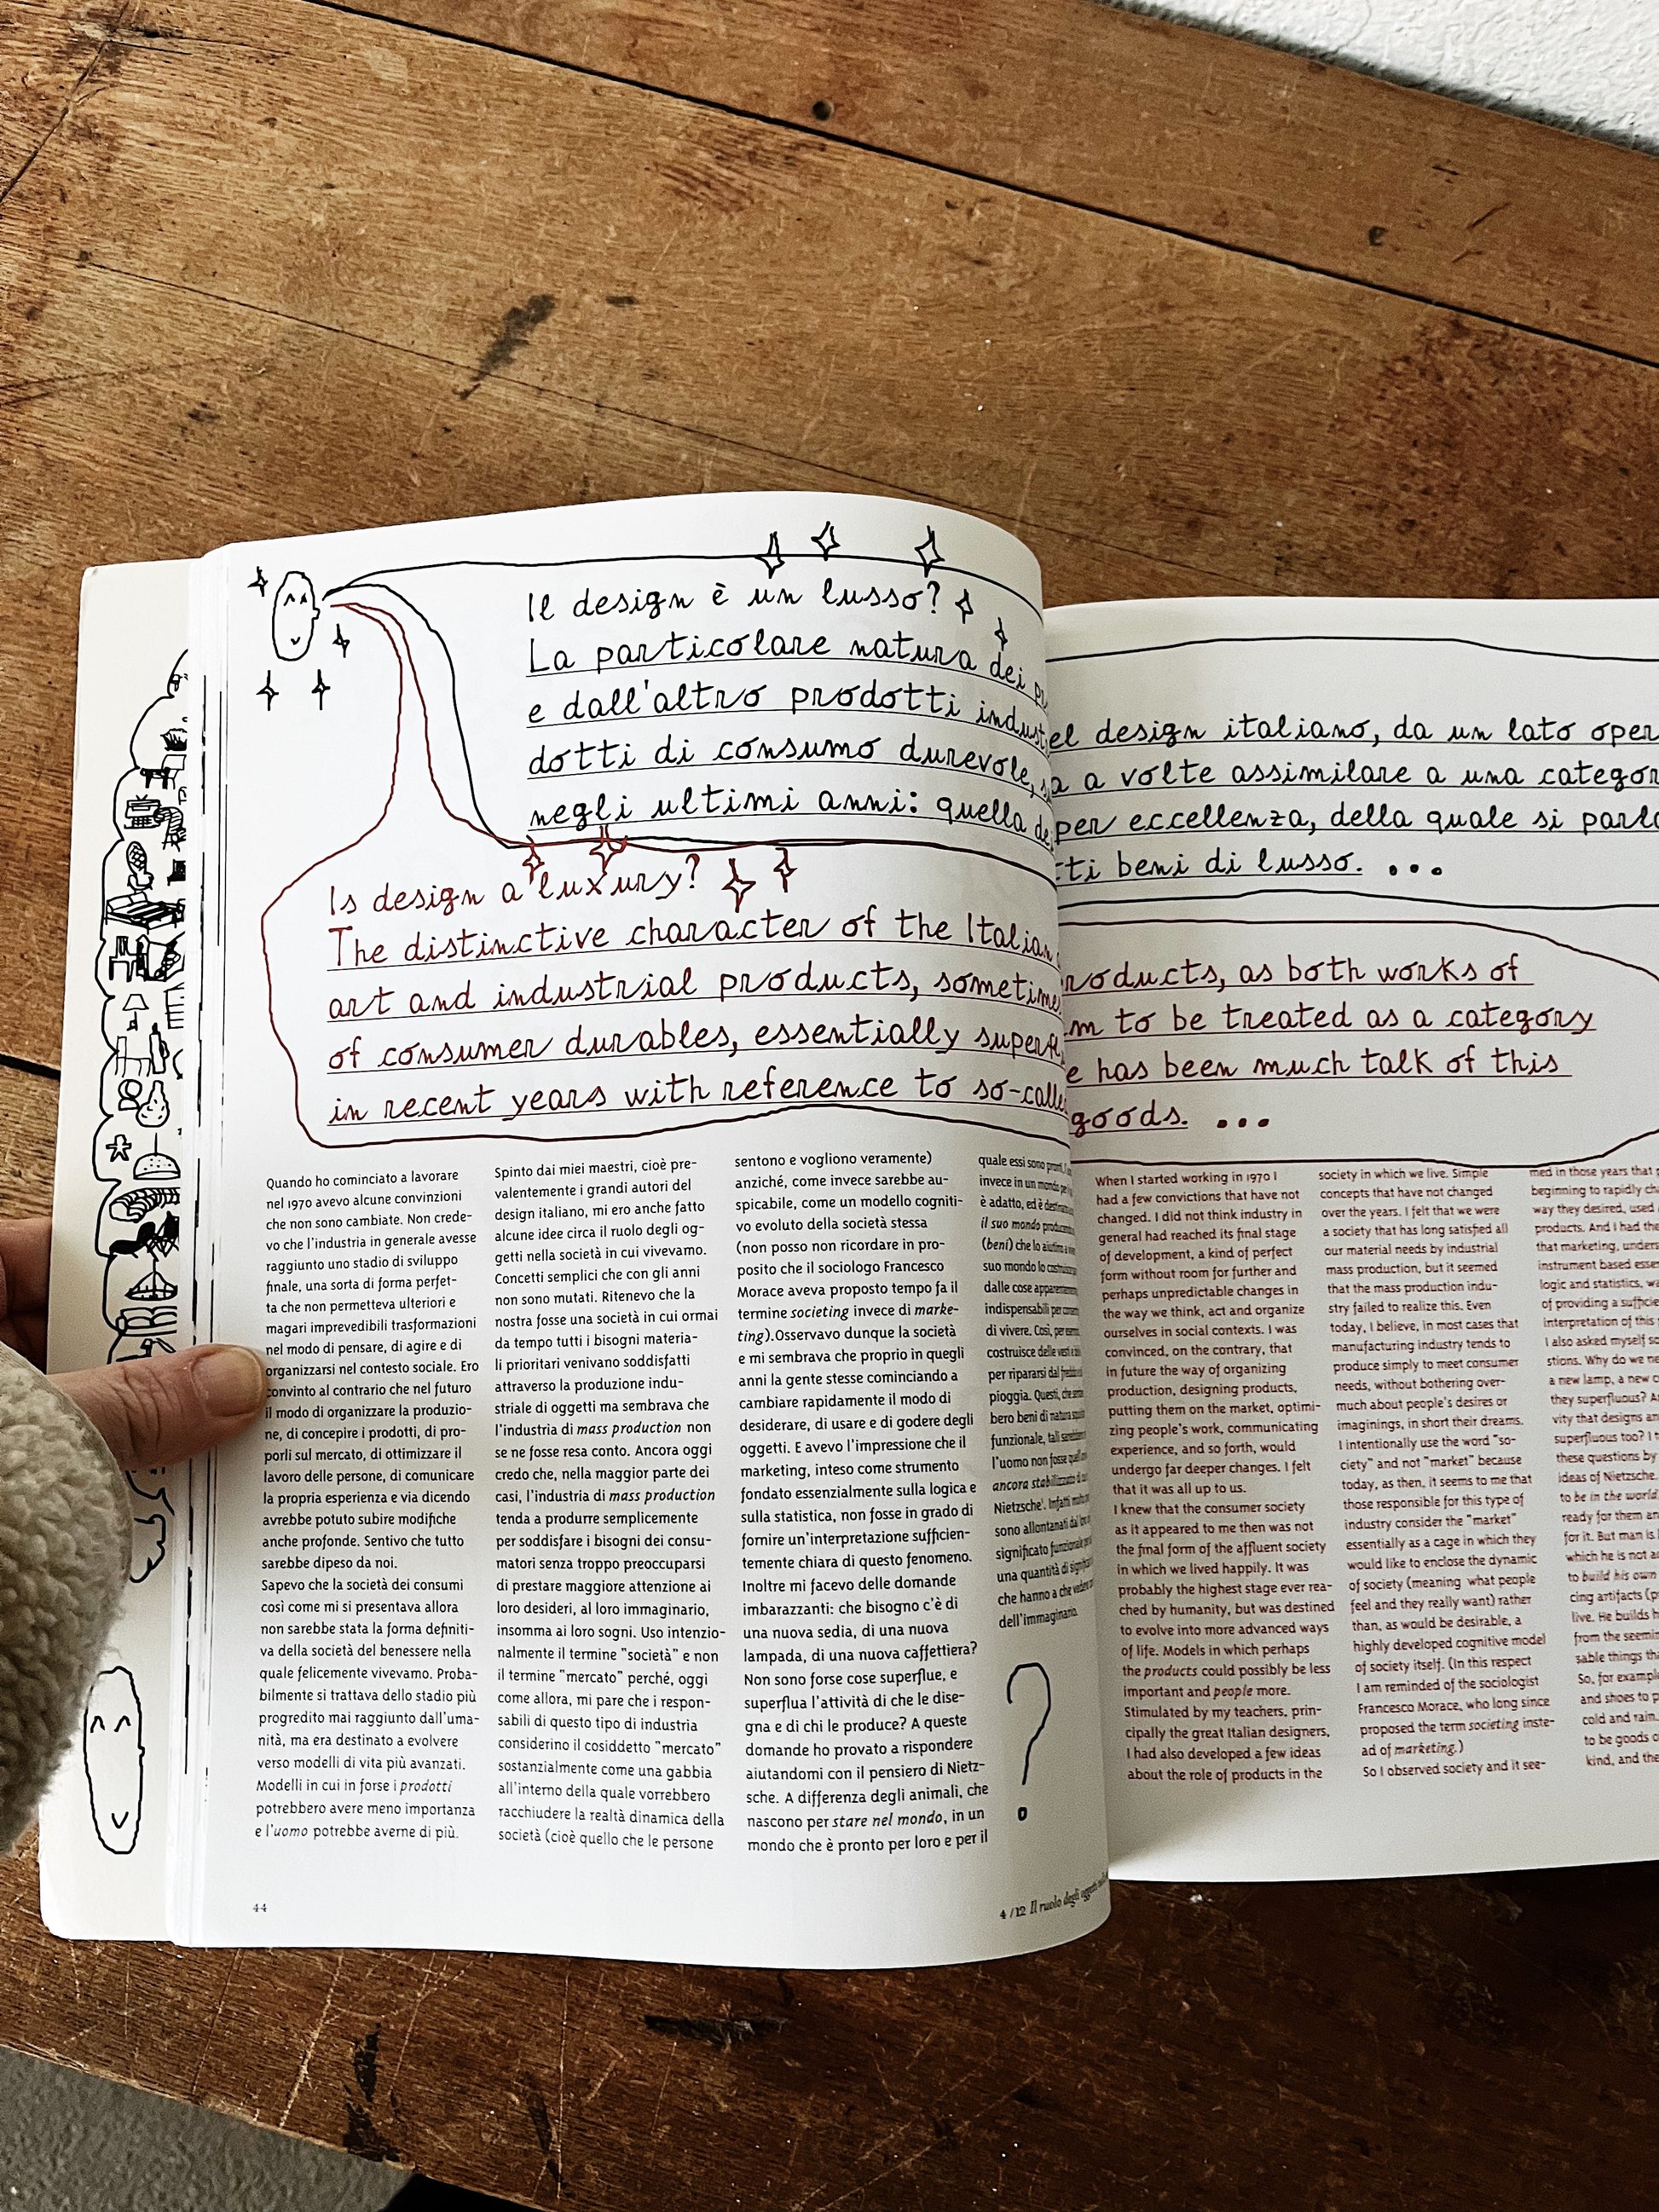 Il design è un lusso?
La particolare natura dei
e dall'altro prodotti
dotti di consumo durevole,
negli ultimi anni: quella
el design italiano, da un lato oper
a a volte assimilare a una categor
per eccellenza, della quale si parl
tti beni di lusso. ...
Is design a luxury?
The distinctive character of the Italian
art and industrial products,
of consumer durables, essentially
in recent years with reference to
roducts, as both works of
m to be treated as a category
e has been much talk of this
goods. ...
Quando ho cominciato a lavorare
nel 1970 avevo alcune convinzioni
che non sono cambiate. Non crede-
vo che l'industria in generale avesse
raggiunto uno stadio di sviluppo
finale, una sorta di forma perfet-
ta che non permetteva ulteriori e
magari imprevedibili trasformazioni
nel modo di pensare, di agire e di
organizzarsi nel contesto sociale. Ero
convinto al contrario che nel futuro
il modo di organizzare la produzio-
ne, di concepire i prodotti, di pro-
porli sul mercato, di ottimizzare il
lavoro delle persone, di comunicare
la propria esperienza e via dicendo
avrebbe potuto subire modifiche
anche profonde. Sentivo che tutto
sarebbe dipeso da noi.
Sapevo che la società dei consumi
così come mi si presentava allora
non sarebbe stata la forma definiti-
va della società del benessere nella
quale felicemente vivevamo. Proba-
bilmente si trattava dello stadio più
progredito mai raggiunto dall'uma-
nità, ma era destinato a evolvere
verso modelli di vita più avanzati.
Modelli in cui in forse i prodotti
potrebbero avere meno importanza
e l'uomo potrebbe averne di più.
Spinto dai miei maestri, cioè pre-
valentemente i grandi autori del
design italiano, mi ero anche fatto
alcune idee circa il ruolo degli og-
getti nella società in cui vivevamo.
Concetti semplici che con gli anni
non sono mutati. Ritenevo che la
nostra fosse una società in cui ormai
da tempo tutti i bisogni materia-
li prioritari venivano soddisfatti
attraverso la produzione indu-
striale di oggetti ma sembrava che
l'industria di mass production non
se ne fosse resa conto. Ancora oggi
credo che, nella maggior parte dei
casi, l'industria di mass production
tenda a produrre semplicemente
per soddisfare i bisogni dei consu-
matori senza troppo preoccuparsi
di prestare maggiore attenzione ai
loro desideri, al loro immaginario,
insomma ai loro sogni. Uso intenzio-
nalmente il termine "società" e non
il termine "mercato" perché, oggi
come allora, mi pare che i respon-
sabili di questo tipo di industria
considerino il cosiddetto "mercato"
sostanzialmente come una gabbia
all'interno della quale vorrebbero
racchiudere la realtà dinamica della
società (cioè quello che le persone
sentono e vogliono veramente)
anziché, come invece sarebbe au-
spicabile, come un modello cogniti-
vo evoluto della società stessa
(non posso non ricordare in pro-
posito che il sociologo Francesco
Morace aveva proposto tempo fa il
termine societing invece di marke-
ting).Osservavo dunque la società
e mi sembrava che proprio in quegli
anni la gente stesse cominciando a
cambiare rapidamente il modo di
desiderare, di usare e di godere degli
oggetti. E avevo l'impressione che il
marketing, inteso come strumento
fondato essenzialmente sulla logica e
sulla statistica, non fosse in grado di
fornire un'interpretazione sufficien-
temente chiara di questo fenomeno.
Inoltre mi facevo delle domande
imbarazzanti: che bisogno c'è di
una nuova sedia, di una nuova
lampada, di una nuova caffettiera?
Non sono forse cose superflue, e
superflua l'attività di che le dise-
gna e di chi le produce? A queste
domande ho provato a rispondere
aiutandomi con il pensiero di Nietz-
sche. A differenza degli animali, che
nascono per stare nel mondo, in un
mondo che è pronto per loro e per il
quale essi sono
invece in un mondo
è adatto, ed è
il suo mondo
(beni) che lo
suo mondo lo
dalle cose
indispensabili per
di vivere. Così, per
costruisce delle
per ripararsi dal
pioggia. Questi, che
bero beni di natura
funzionale, tali
l'uomo non fosse
ancora stabilizzato
Nietzsche'. Infatti
sono allontanati dal
significato funzionale
una quantità di
che hanno a che
dell'immaginario.
?
44
4/12 Il ruolo degli oggetti
When I started working in 1970 I
had a few convictions that have not
changed. I did not think industry in
general had reached its final stage
of development, a kind of perfect
form without room for further and
perhaps unpredictable changes in
the way we think, act and organize
ourselves in social contexts. I was
convinced, on the contrary, that
in future the way of organizing
production, designing products,
putting them on the market, optimi-
zing people's work, communicating
experience, and so forth, would
undergo far deeper changes. I felt
that it was all up to us.
I knew that the consumer society
as it appeared to me then was not
the final form of the affluent society
in which we lived happily. It was
probably the highest stage ever rea-
ched by humanity, but was destined
to evolve into more advanced ways
of life. Models in which perhaps
the products could possibly be less
important and people more.
Stimulated by my teachers, prin-
cipally the great Italian designers,
I had also developed a few ideas
about the role of products in the
society in which we live. Simple
concepts that have not changed
over the years. I felt that we were
a society that has long satisfied all
our material needs by industrial
mass production, but it seemed
that the mass production indu-
stry failed to realize this. Even
today, I believe, in most cases that
manufacturing industry tends to
produce simply to meet consumer
needs, without bothering over-
much about people's desires or
imaginings, in short their dreams.
I intentionally use the word "so-
ciety" and not "market" because
today, as then, it seems to me that
those responsible for this type of
industry consider the "market"
essentially as a cage in which they
would like to enclose the dynamic
of society (meaning what people
feel and they really want) rather
than, as would be desirable, a
highly developed cognitive model
of society itself. (In this respect
I am reminded of the sociologist
Francesco Morace, who long since
proposed the term societing inste-
ad of marketing.)
So I observed society and it see-
med in those years that
beginning to rapidly
way they desired, used
products. And I had the
that marketing,
instrument based
logic and statistics,
of providing a
interpretation of this
I also asked myself
stions. Why do we
a new lamp, a new
they superfluous?
vity that designs
superfluous too? I
these questions by
ideas of Nietzsche.
to be in the world
ready for them
for it. But man is
which he is not
to build his own
cing artifacts
live. He builds
from the
sable things
So, for example
and shoes to
cold and rain.
to be goods
kind, and the